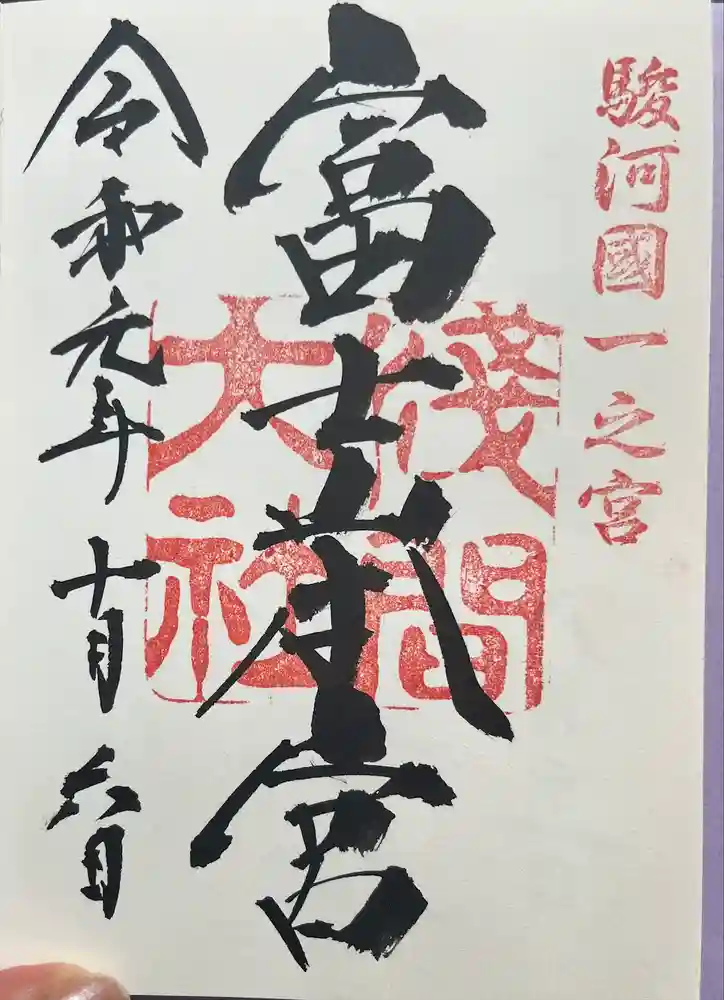 駿河國一之宮
富士山本宮
淺間大社
令和元年十月六日